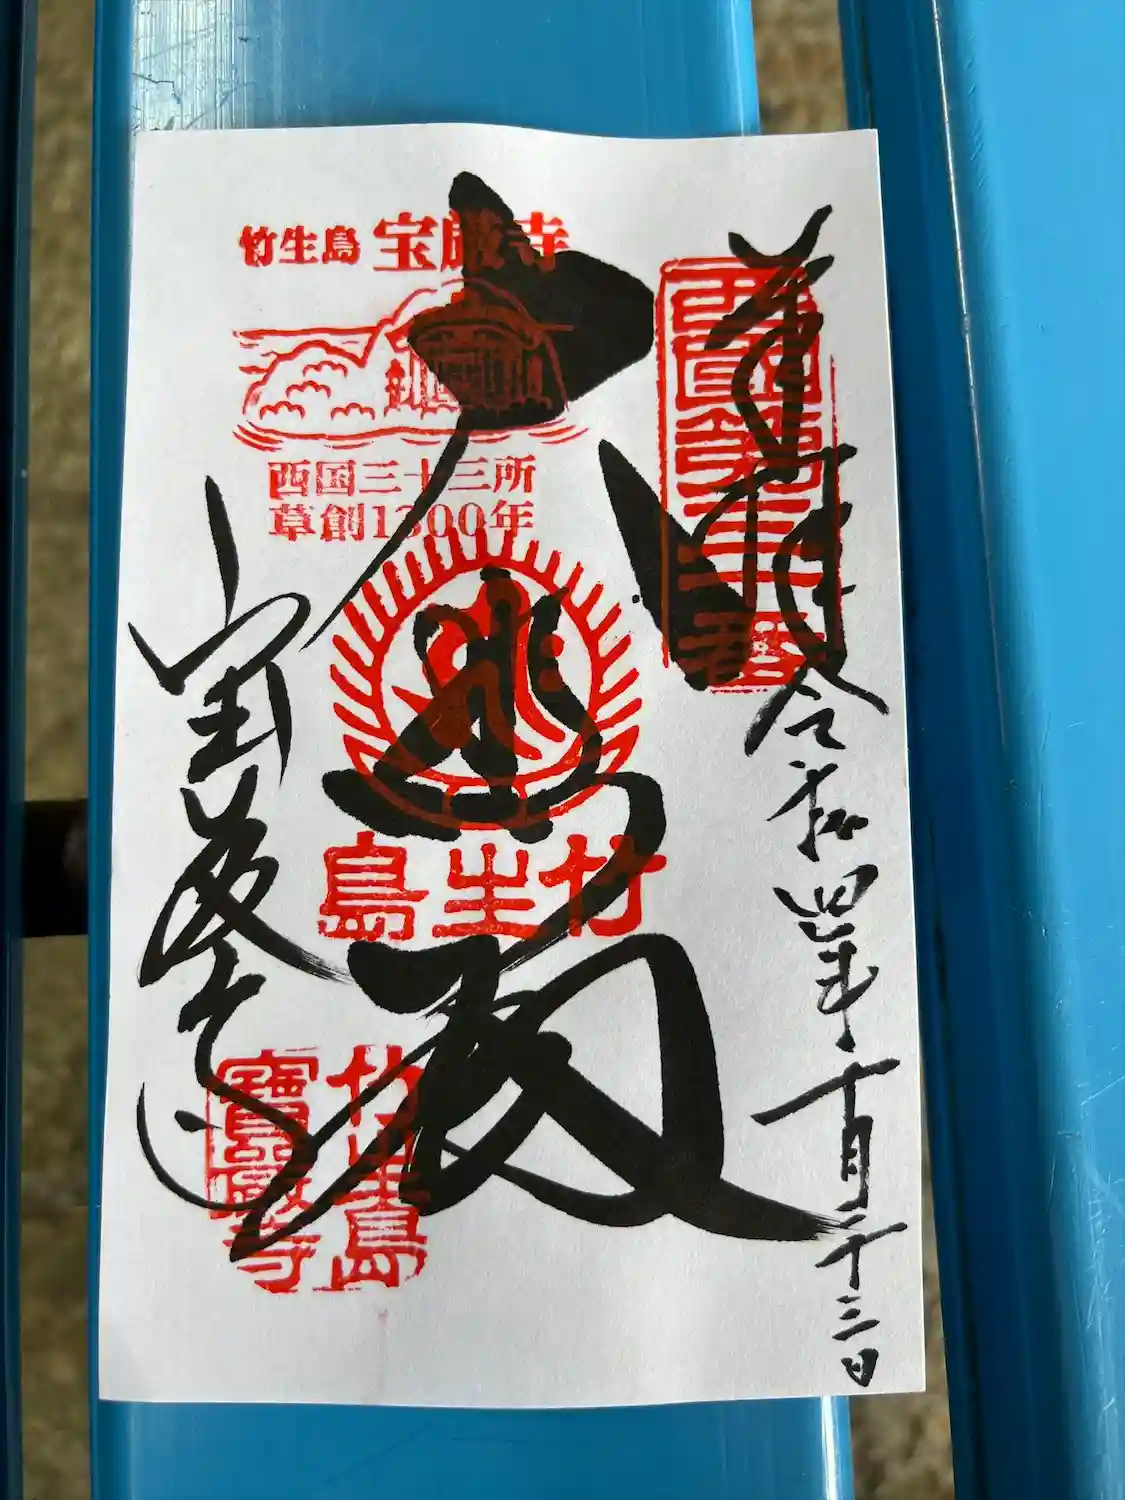 奉拝
西國第三十番
令和四年十月二十三日
竹生島 宝厳寺
西国三十三所
草創1300年
大悲殿
竹生島
宝厳寺
竹生島
寶嚴寺